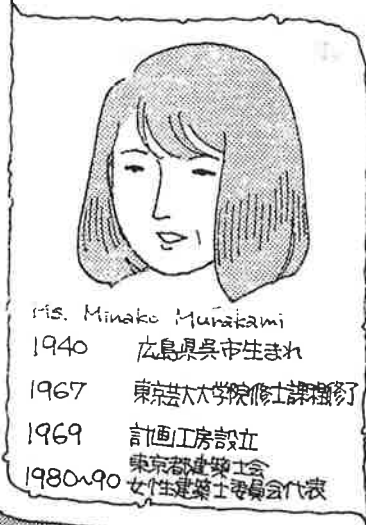 Ms. Minako Murakami
1940 広島県呉市生まれ
1967 東京芸大大学院修士課程修了
1969 計画工房設立
1980~90 東京都建築士会
女性建築士委員会代表